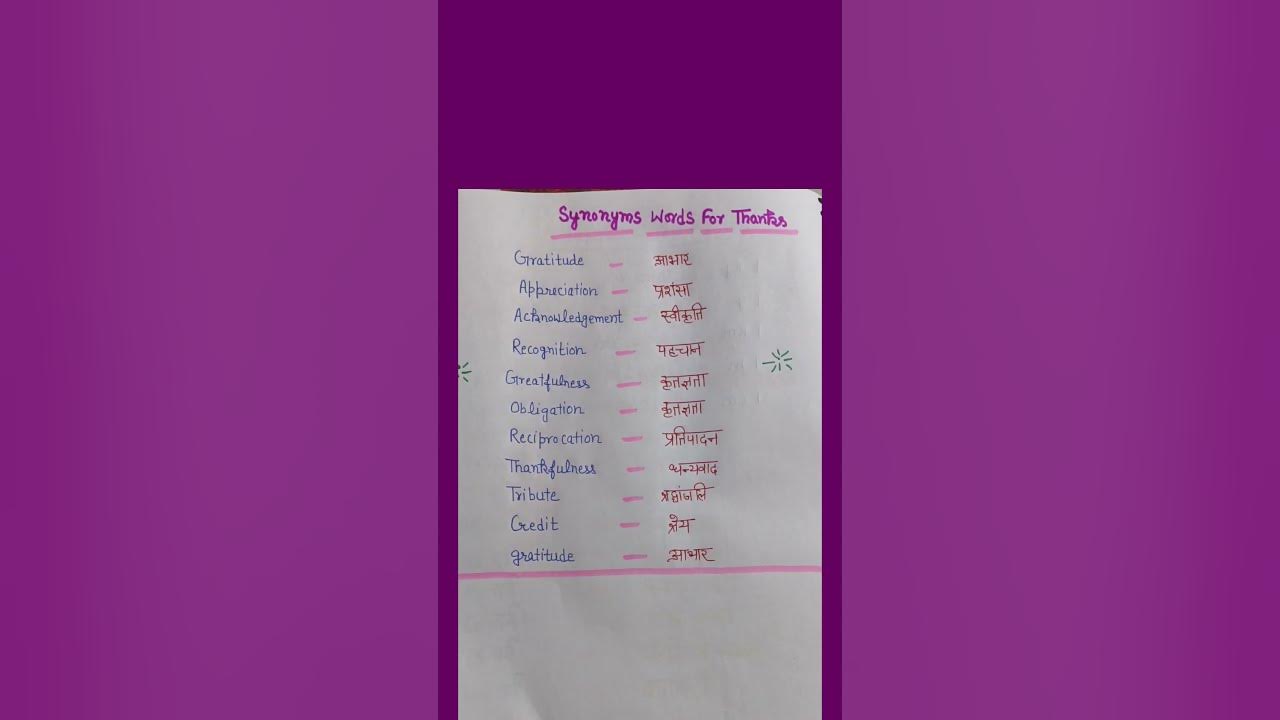 Synonyms Words For Thanks
Gratitude - आभार
Appreciation - प्रशंसा
Acknowledgement - स्वीकृति
Recognition - पहचान
Greatfulness - कृतज्ञता
Obligation - कृतज्ञता
Reciprocation - प्रतिपादन
Thankfulness - धन्यवाद
Tribute - श्रद्धांजलि
Credit - श्रेय
gratitude - आभार